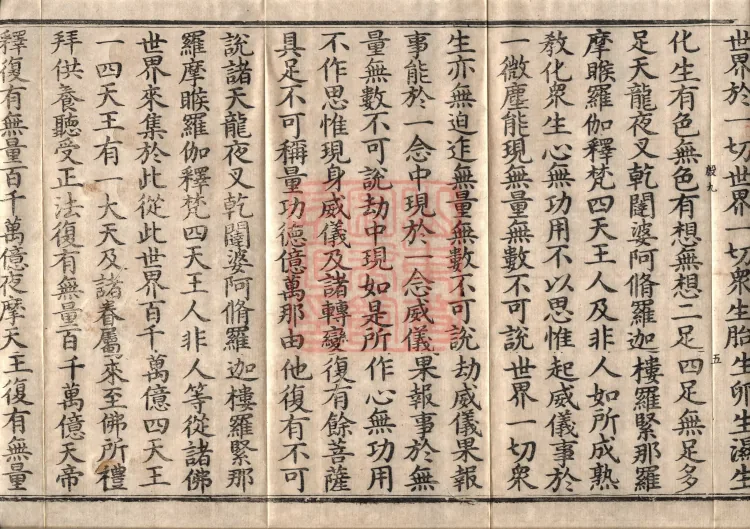 世界於一切世界一切衆生胎生卵生濕生
化生有色無色有想無想二足四足無足多
殷九
五
足天龍夜叉乾闥婆阿脩羅迦樓羅緊那羅
摩睺羅伽釋梵四天王人及非人如所成熟
敎化衆生心無功用不以思惟起威儀事於
一微塵能現無量無數不可說世界一切衆
生亦無迫迮無量無數不可說劫威儀果報
事能於一念中現於一念威儀果報事於無
量無數不可說劫中現如是所作心無功用
不作思惟現身威儀及諸轉變復有餘菩薩
具足不可稱量功德億萬那由他復有不可
說諸天龍夜叉乾闥婆阿脩羅迦樓羅緊那
羅摩睺羅伽釋梵四天王人非人等從諸佛
世界來集於此從此世界百千萬億四天王
一四天王有一大天及諸眷屬來至佛所禮
拜供養聽受正法復有無量百千萬億天帝
釋復有無量百千萬億夜摩天王復有無量